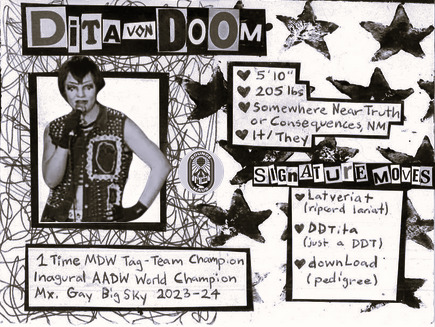 DiTA VON DOOM
5'10"
205 lbs
Somewhere Near Truth
or Consequences, NM
It/They
SiGNATURE MOVES
Latveriat
(ripcord lariat)
DDTita
(just a DDT)
download
(pedigree)
1 Time MDW Tag-Team Champion
Inagural AADW World Champion
Mx. Gay Big Sky 2023-24